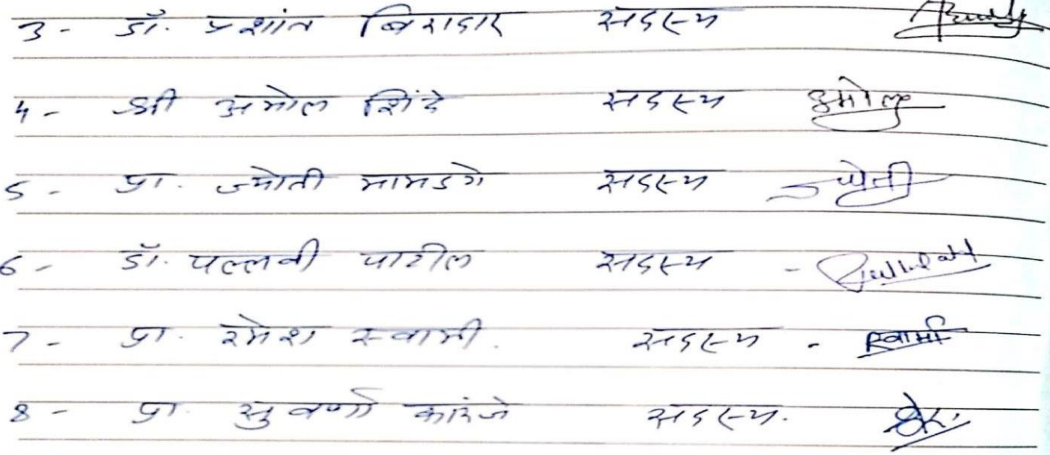 3 - डॉ. प्रशांत बिरादार सदस्य
4 - श्री अमोल शिंदे सदस्य अमोल
5 - प्रा. ज्योती मामडगे सदस्य ज्योती
6 - डॉ. पल्लवी पाटील सदस्य -
7 - प्रा. रमेश स्वामी. सदस्य - स्वामी
8 - प्रा. सुवर्णा कारंजे सदस्य.